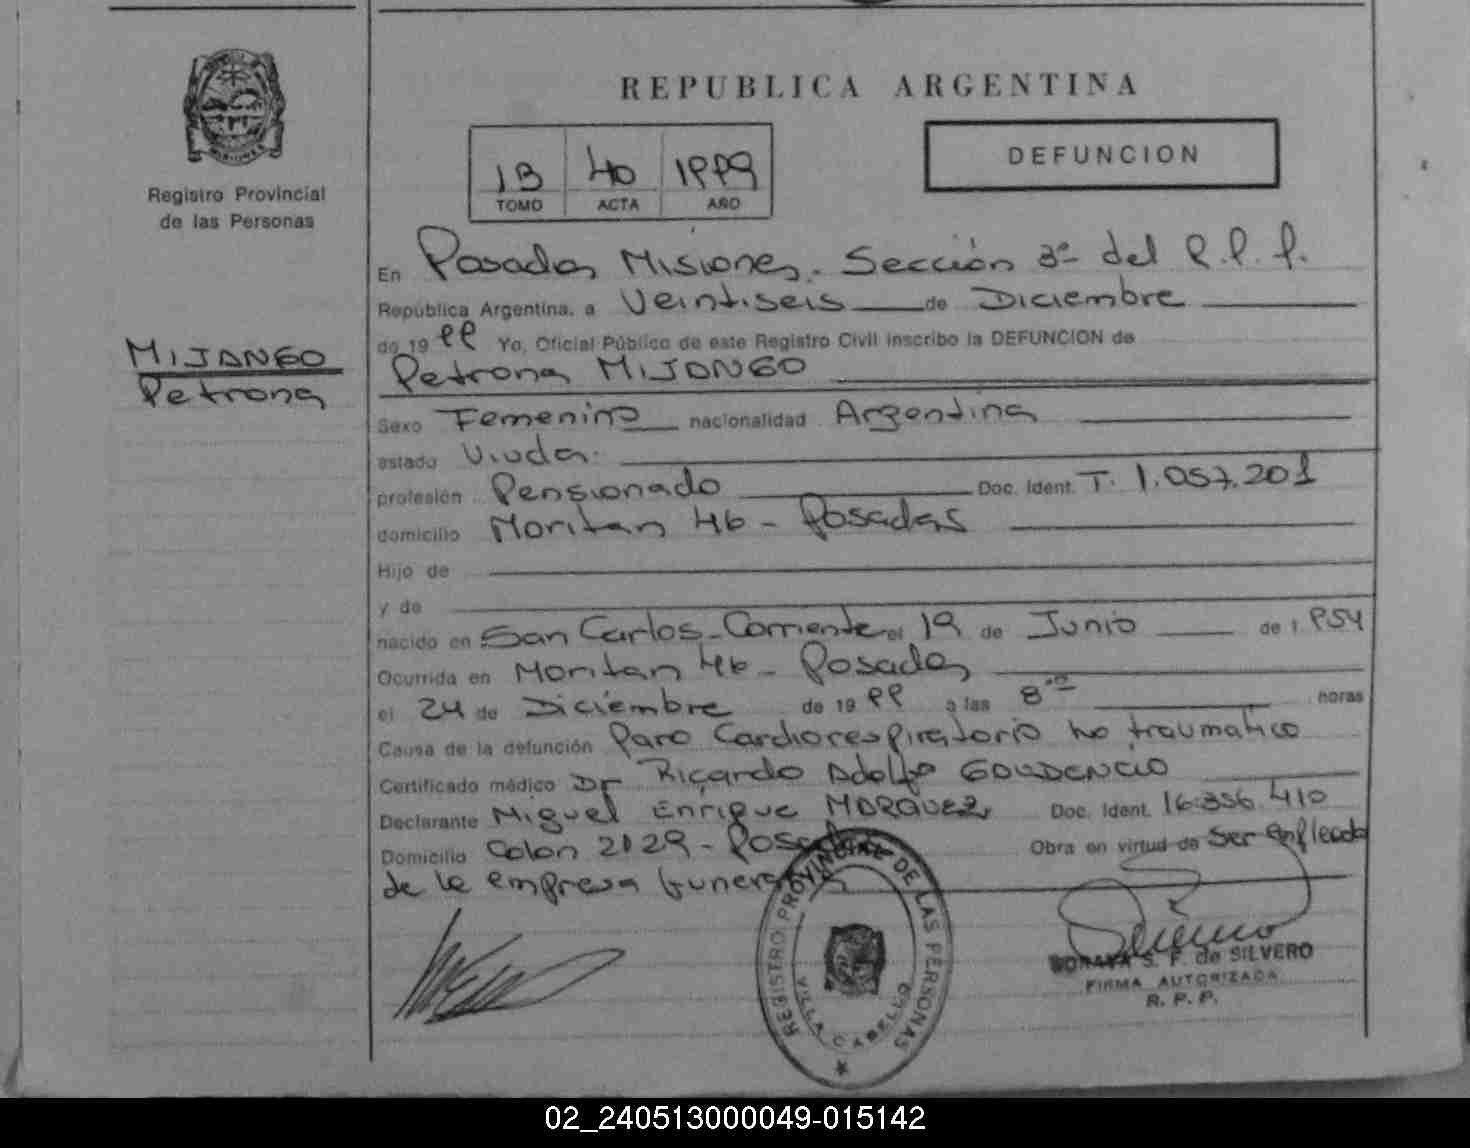 REPUBLICA ARGENTINA
DEFUNCION
13 40 1999
TOMO ACTA AÑO
Registro Provincial
de las Personas
MIJANGO
Petrona
En Posadas Misiones. Sección 3º del R.P.P.
República Argentina, a Veintiseis de Diciembre
de 1999 Yo, Oficial Público de este Registro Civil inscribo la DEFUNCION de
Petrona MIJANGO
Sexo Femenino nacionalidad Argentina
estado Viuda.
profesión Pensionado Doc. Ident. T. 1.057.201
domicilio Moritan 46 - Posadas
Hijo de
y de
nacido en San Carlos - Corriente el 19 de Junio de 1.954
Ocurrida en Moritan 46 - Posadas
el 24 de Diciembre de 1999 a las 8 horas
Causa de la defunción Paro Cardiorespiratorio no traumatico
Certificado médico Dr Ricardo Adolfo
Declarante Miguel Enrique MARQUEZ Doc. Ident. 16.356.410
Domicilio Colon 2129 - Posadas Obra en virtud de ser empleado
de la empresa funeraria
REGISTRO PROVINCIAL DE LAS PERSONAS
VILLA CABELLO
SORAYA S. F. de SILVERO
FIRMA AUTORIZADA
R. P. P.
02_240513000049-015142